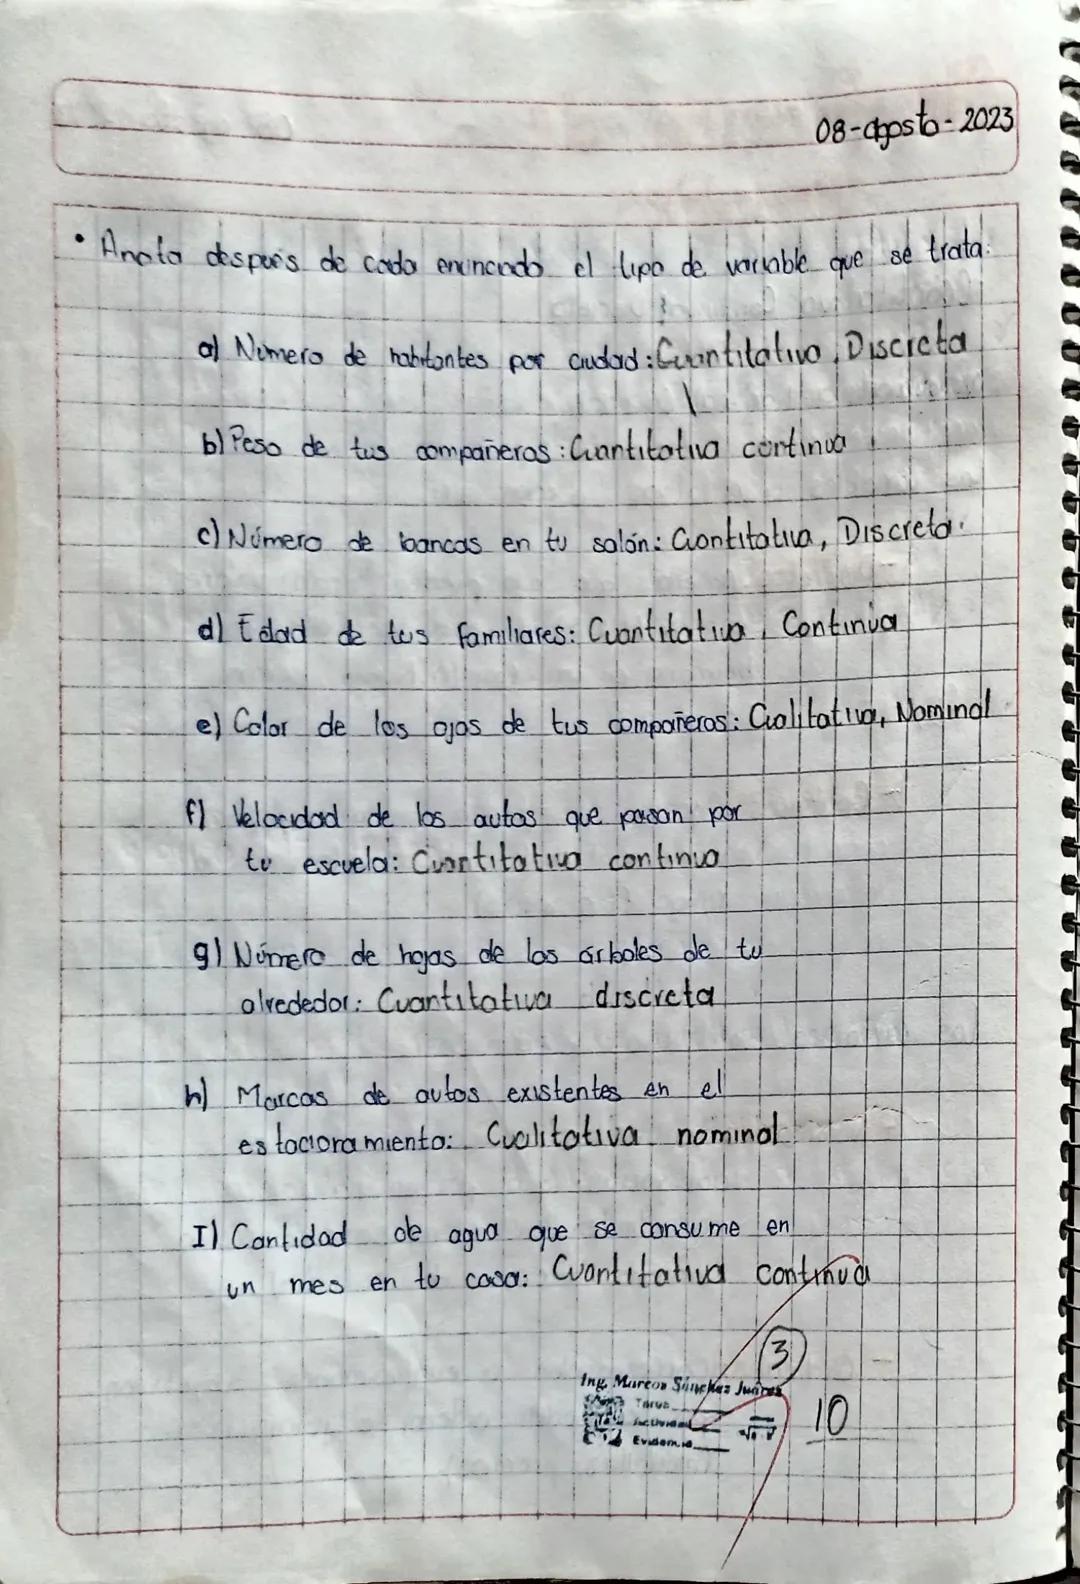 08-agosto-2023
• Anota después de cada enunciado el tipo de variable que se trata.
a) Número de habitantes por ciudad: Cuantitativo, Discreta
b) Peso de tus compañeros: Cuantitativa continua
c) Número de bancas en tu salón: Cuantitativa, Discreta.
d) Edad de tus familiares: Cuantitativa, Continua
e) Color de los ojos de tus compañeros: Cualitativa, Nominal
f) Velocidad de los autos que pasan por
tu escuela: Cuantitativa continua
g) Número de hojas de los árboles de tu
alrededor: Cuantitativa discreta
h) Marcas de autos existentes en el
estacionamiento: Cualitativa nominal
I) Cantidad de agua que se consume en
un mes en tu casa: Cuantitativa continua
3
Ing. Marcos Sánchez Juárez
Tarea
Actividad
Evidencia
10